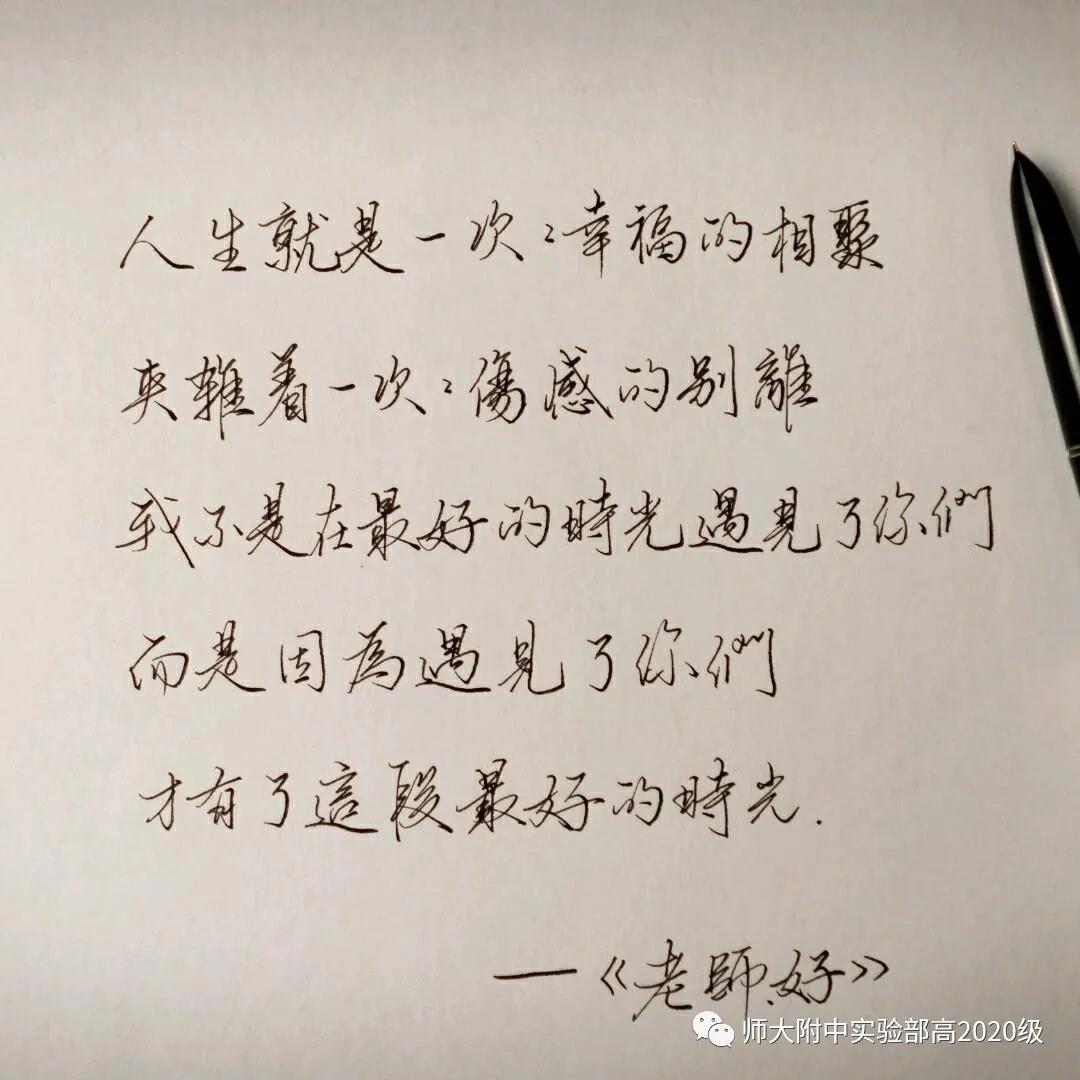 人生就是一次:幸福的相聚
夾雜着一次:傷感的别離
我不是在最好的時光遇見了你們
而是因為遇見了你們
才有了這段最好的時光.
—《老師.好》
师大附中实验部高2020级